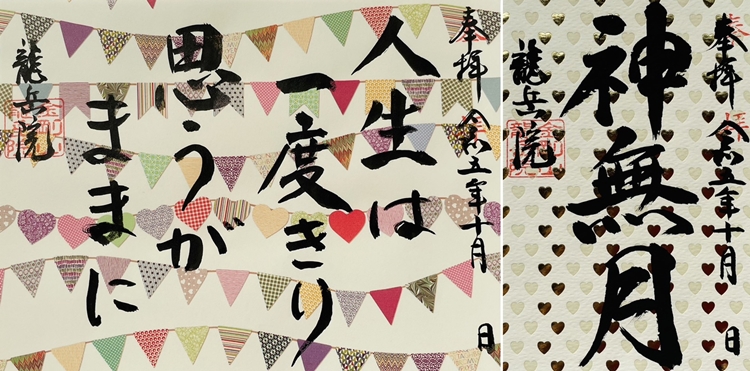 奉拝 令和五年十月 日
人生は
一度きり
思うが
ままに
龍岳院
奉拝 令和五年十月 日
神無月
龍岳院